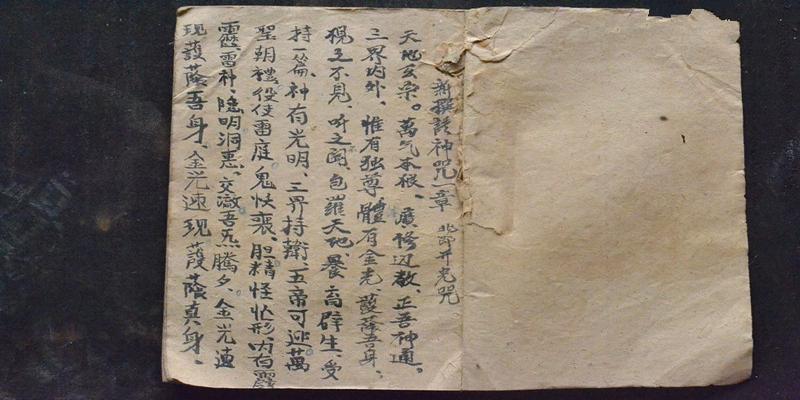 新撰諸神咒一章 北即井光咒
天地玄宗。萬气本根、廣修辺教、正吾神通。
三界内外、惟有独尊體有金光、護蔭吾身、
視之不見、听之闻、包羅天地、養育群生、受
持一篇、神有光明、三界持衛、五帝可迎萬
聖朝禮、役使雷庭。鬼怢喪、胆精怪忙形、内有靂
靂雷神、隐明洞惠、交澈吾炁騰夕、金光速
現護蔭吾身、金光速現護蔭真身、